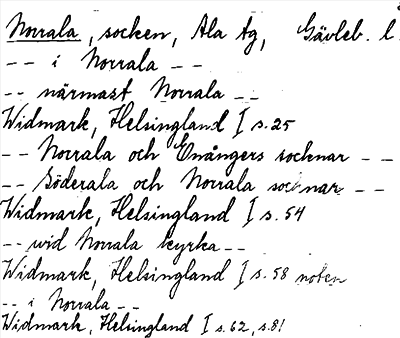 Norrala, socken, Ala tg, Gävleb. l
-- i Norrala --
-- närmast Norrala --
Widmark, Helsingland I s. 25
-- Norrala och Enångers socknar --
-- Söderala och Norrala socknar --
Widmark, Helsingland I s. 54
-- wid Norrala kyrka --
Widmark, Helsingland I s. 58 noten
-- i Norrala --
Widmark, Helsingland I s. 62, s. 81